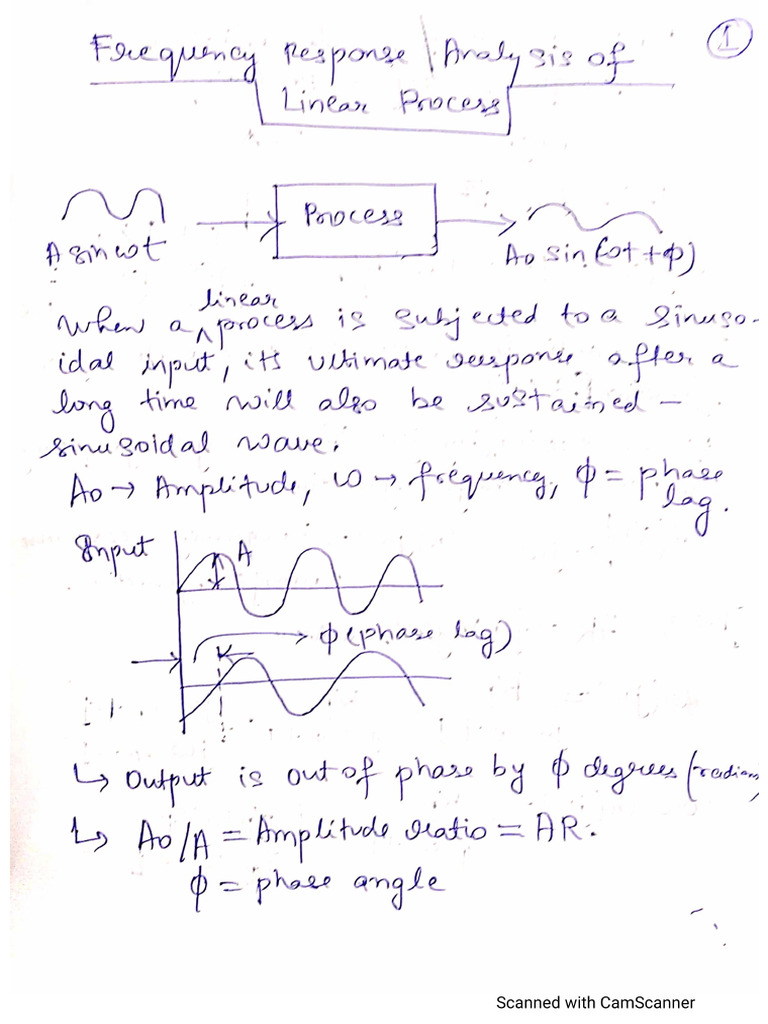 ①
Frequency Response Analysis of
Linear Process
Process
A sin ωt
Ao sin(ωt + ϕ)
linear
When a ^ process is subjected to a sinuso-
idal input, its ultimate response after a
long time will also be sustained -
sinusoidal wave.
Ao → Amplitude, ω → frequency, ϕ = phase
lag.
Input
A
ϕ (phase lag)
↳ Output is out of phase by ϕ degrees (radian)
↳ Ao/A = Amplitude ratio = AR.
ϕ = phase angle
Scanned with CamScanner